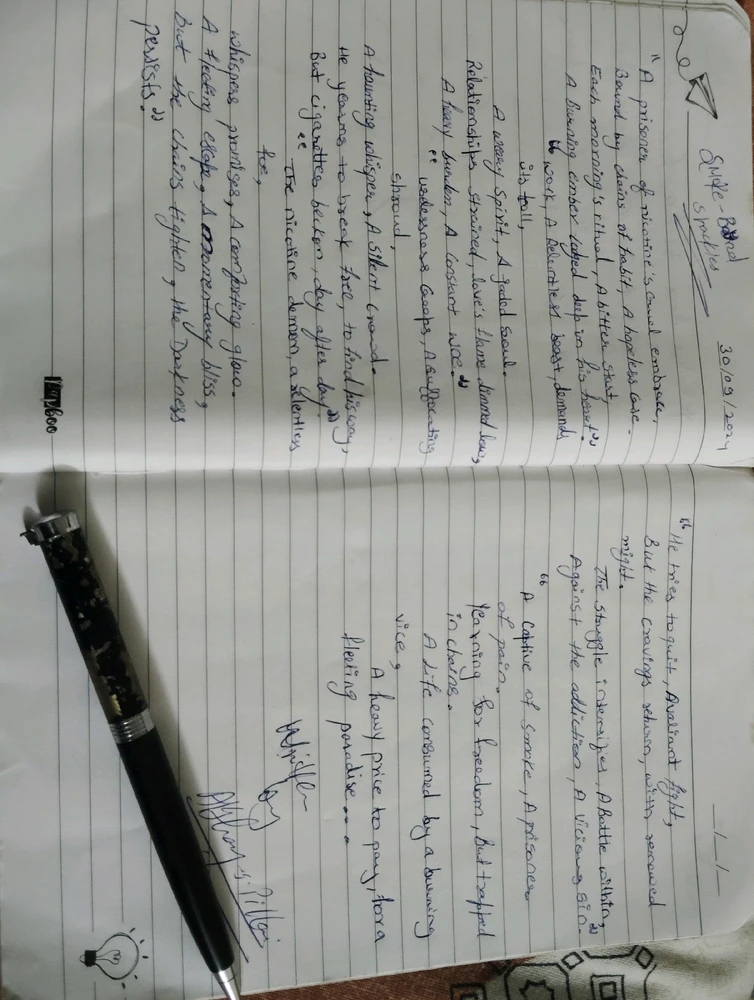 Smoke-Bound
shackles
30/09/2024
"A prisoner of nicotine's cruel embrace,
Bound by chains of habit, A hopeless case.
Each morning's ritual, A bitter start,
A burning ember lodged deep in his heart"
"work, A Relentless beast, demands
its toll,
A weary spirit, A faded soul.
Relationships strained, love's flame dimmed low,
A heavy burden, A constant woe."
"uselessness creeps, A suffocating
shroud,
A haunting whisper, A silent crowd.
He yearns to break free, to find his way,
But cigarettes beckon, day after day"
"The nicotine demon, a relentless
foe,
whispers promises, A comforting glow.
A fleeting escape, A momentary bliss,
But the chains tighten, the Darkness
persists."
__/__/__
"He tries to quit, A valiant fight,
But the cravings return, with renewed
might.
The struggle intensifies, A Battle within,
Against the addiction, A vicious sin."
"A captive of smoke, A prisoner
of pain.
Yearning for freedom, But trapped
in chains.
A Life consumed by a burning
vice,
A heavy price to pay, for a
fleeting paradise....
Written
By
Pillai